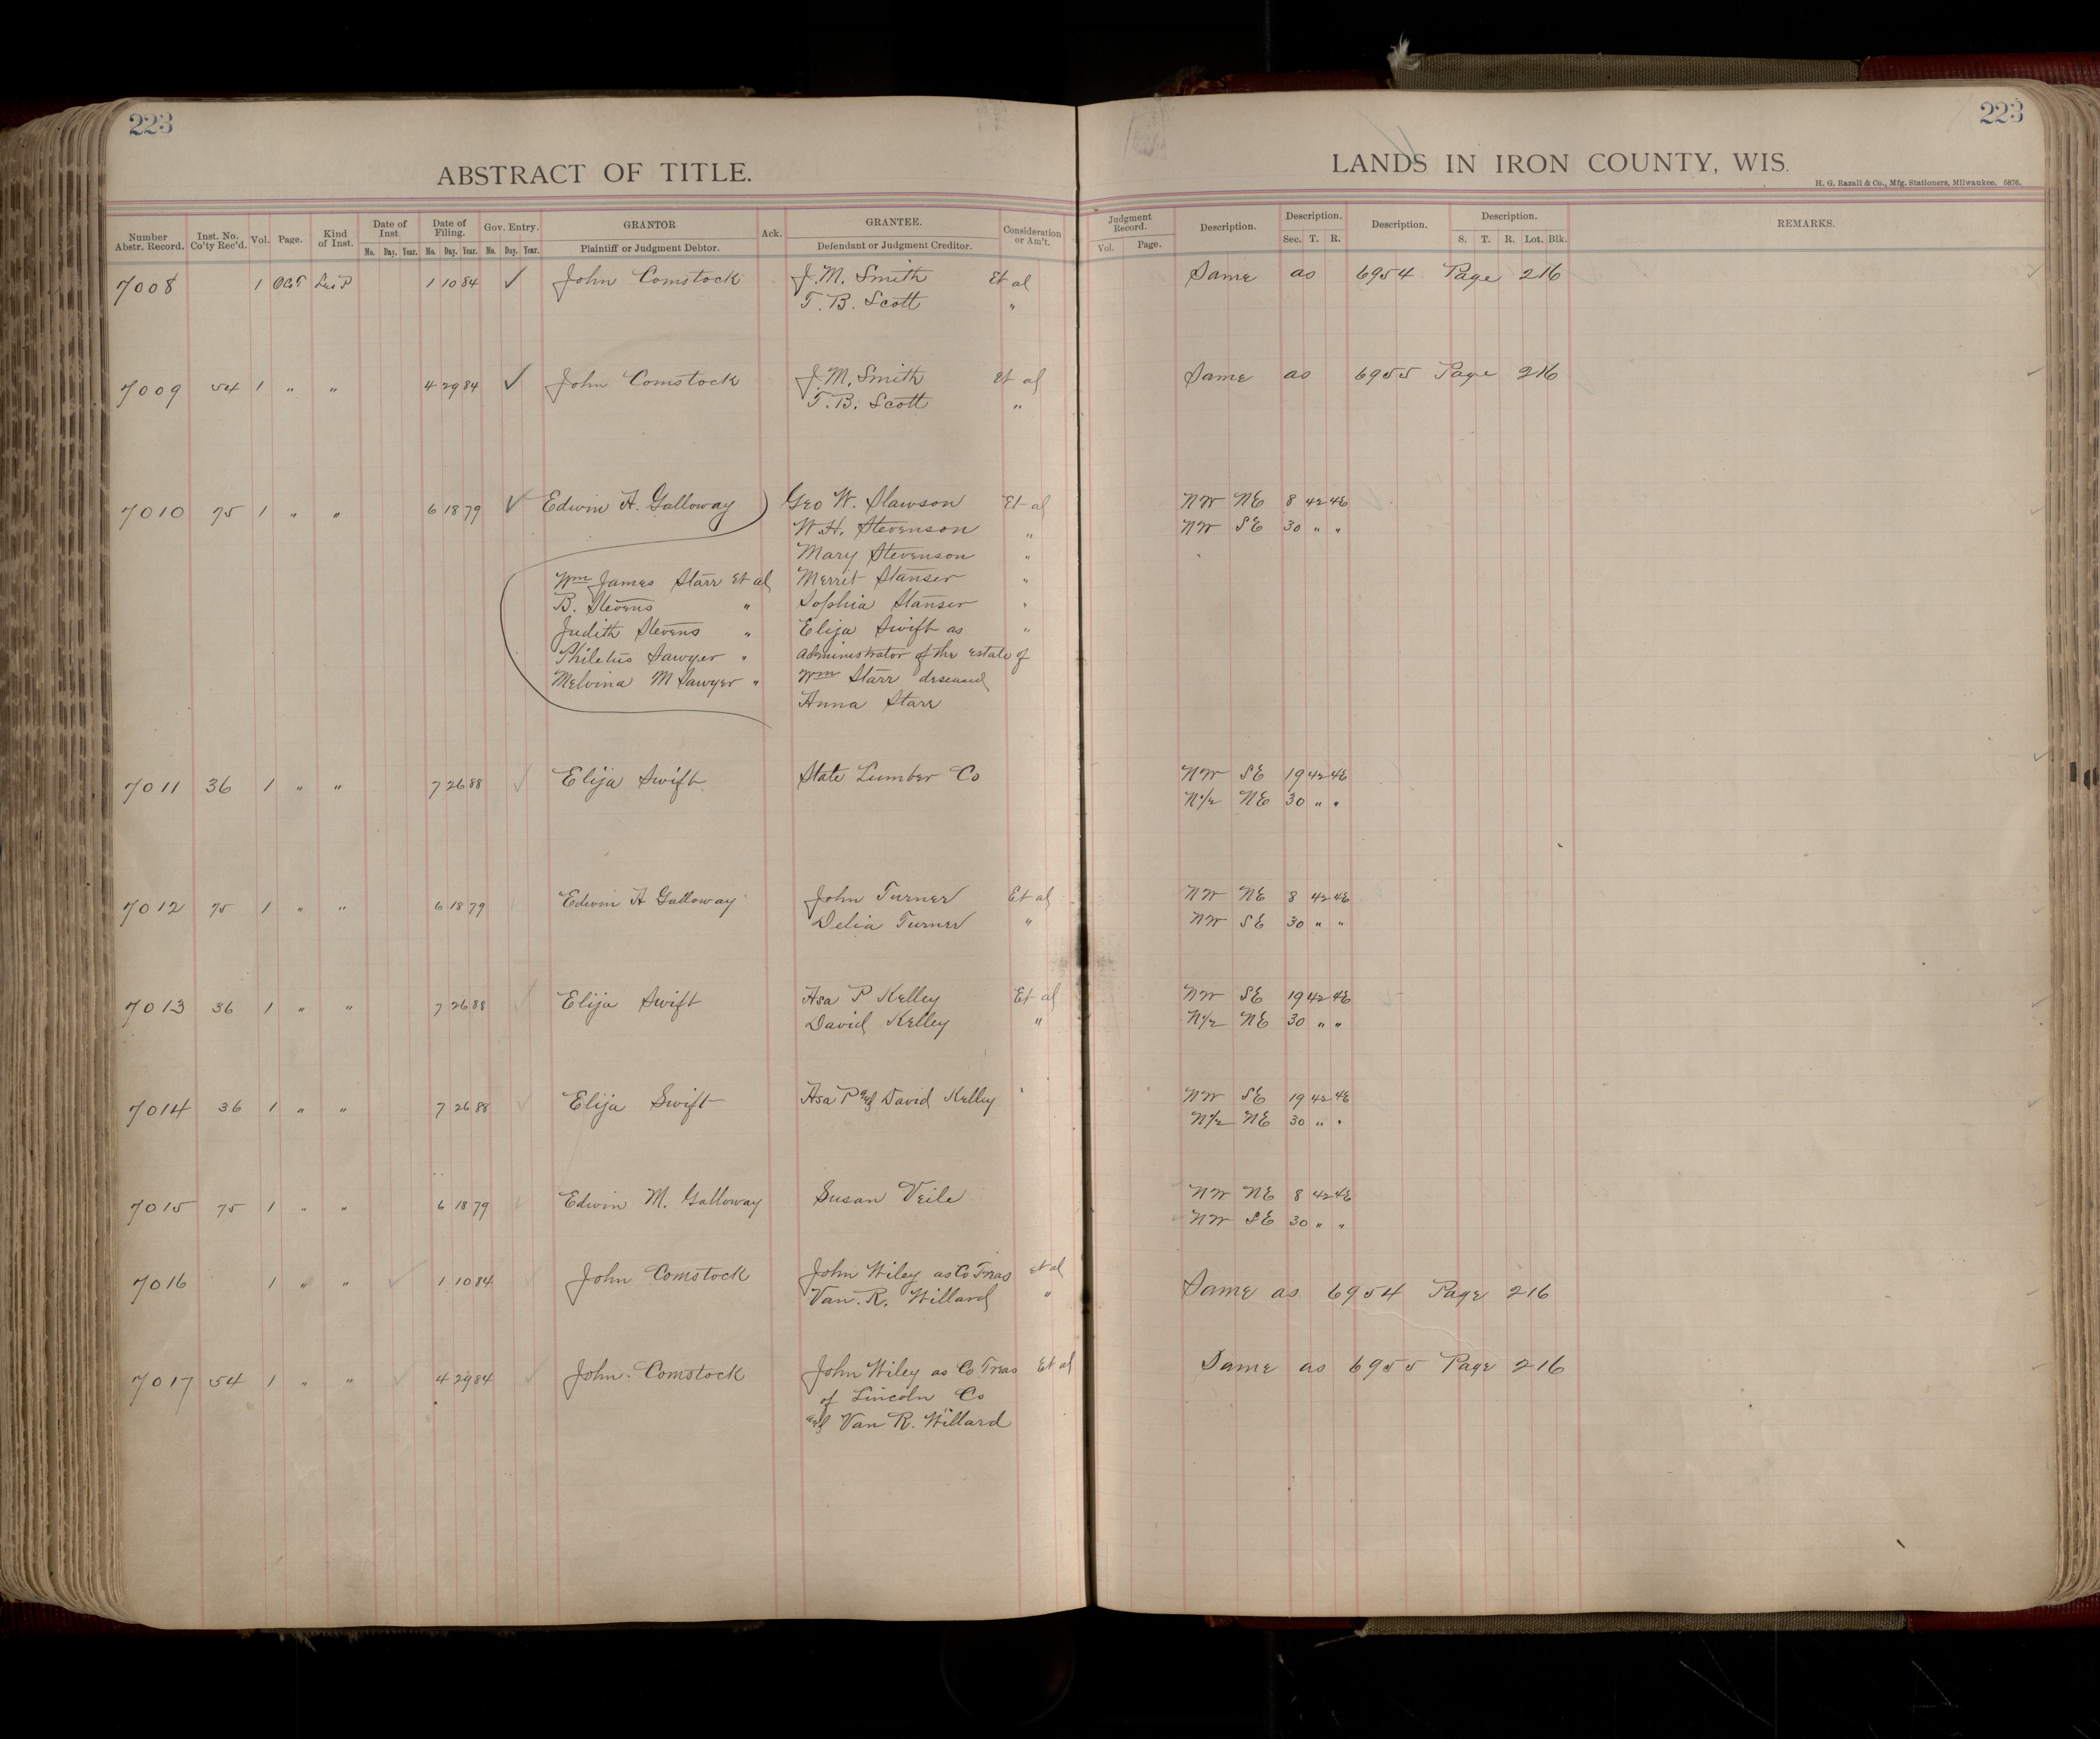 223
ABSTRACT OF TITLE.
Number Abstr. Record. Inst. No. Co'ty Rec'd. Vol. Page. Kind of Inst. Date of Inst Date of Filing. Gov. Entry. GRANTOR Ack. GRANTEE. Consideration or Am't.
No. Day. Year. No. Day. Year. No. Day. Year. Plaintiff or Judgment Debtor. Defendant or Judgment Creditor.
7008 1 Lis P 1 10 84 ✓ John Comstock J. M. Smith Et al
T. B. Scott "
7009 54 1 " " 4 29 84 ✓ John Comstock J. M. Smith Et al
T. B. Scott "
7010 75 1 " " 6 18 79 ✓ Edwin H. Galloway Geo W. Slawson Et al
W. H. Stevenson "
Mary Stevenson "
Wm James Starr Et al Merrit Stanser "
B. Stevens " Sophia Stanser "
Judith Stevens " Elija Swift as "
Philetus Sawyer " administrator of the estate of
Melvina M Sawyer " Wm Starr deseased
Anna Starr
7011 36 1 " " 7 26 88 ✓ Elija Swift State Lumber Co
7012 75 1 " " 6 18 79 Edwin H Galloway John Turner Et al
Delia Turner "
7013 36 1 " " 7 26 88 ✓ Elija Swift Asa P Kelley Et al
David Kelley "
7014 36 1 " " 7 26 88 ✓ Elija Swift Asa P and David Kelley
7015 75 1 " " 6 18 79 Edwin M. Galloway Susan Veile
7016 1 " " ✓ 1 10 84 John Comstock John Wiley as Co Treas et al
Van. R. Willard "
7017 54 1 " " ✓ 4 29 84 ✓ John Comstock John Wiley as Co Treas Et al
of Lincoln Co
and Van R. Willard
223
LANDS IN IRON COUNTY, WIS.
H. G. Razall & Co., Mfg. Stationers, Milwaukee. 5876.
Judgment Record. Description. Description. Description. Description. REMARKS.
Vol. Page. Sec. T. R. S. T. R. Lot. Blk.
Same as 6954 Page 216
Same as 6955 Page 216
NW NE 8 42 4E
NW SE 30 " "
NW SE 19 42 4E
N1/2 NE 30 " "
NW NE 8 42 4E
NW SE 30 " "
NW SE 19 42 4E
N1/2 NE 30 " "
NW SE 19 42 4E
N1/2 NE 30 " "
NW NE 8 42 4E
NW SE 30 " "
Same as 6954 Page 216
Same as 6955 Page 216